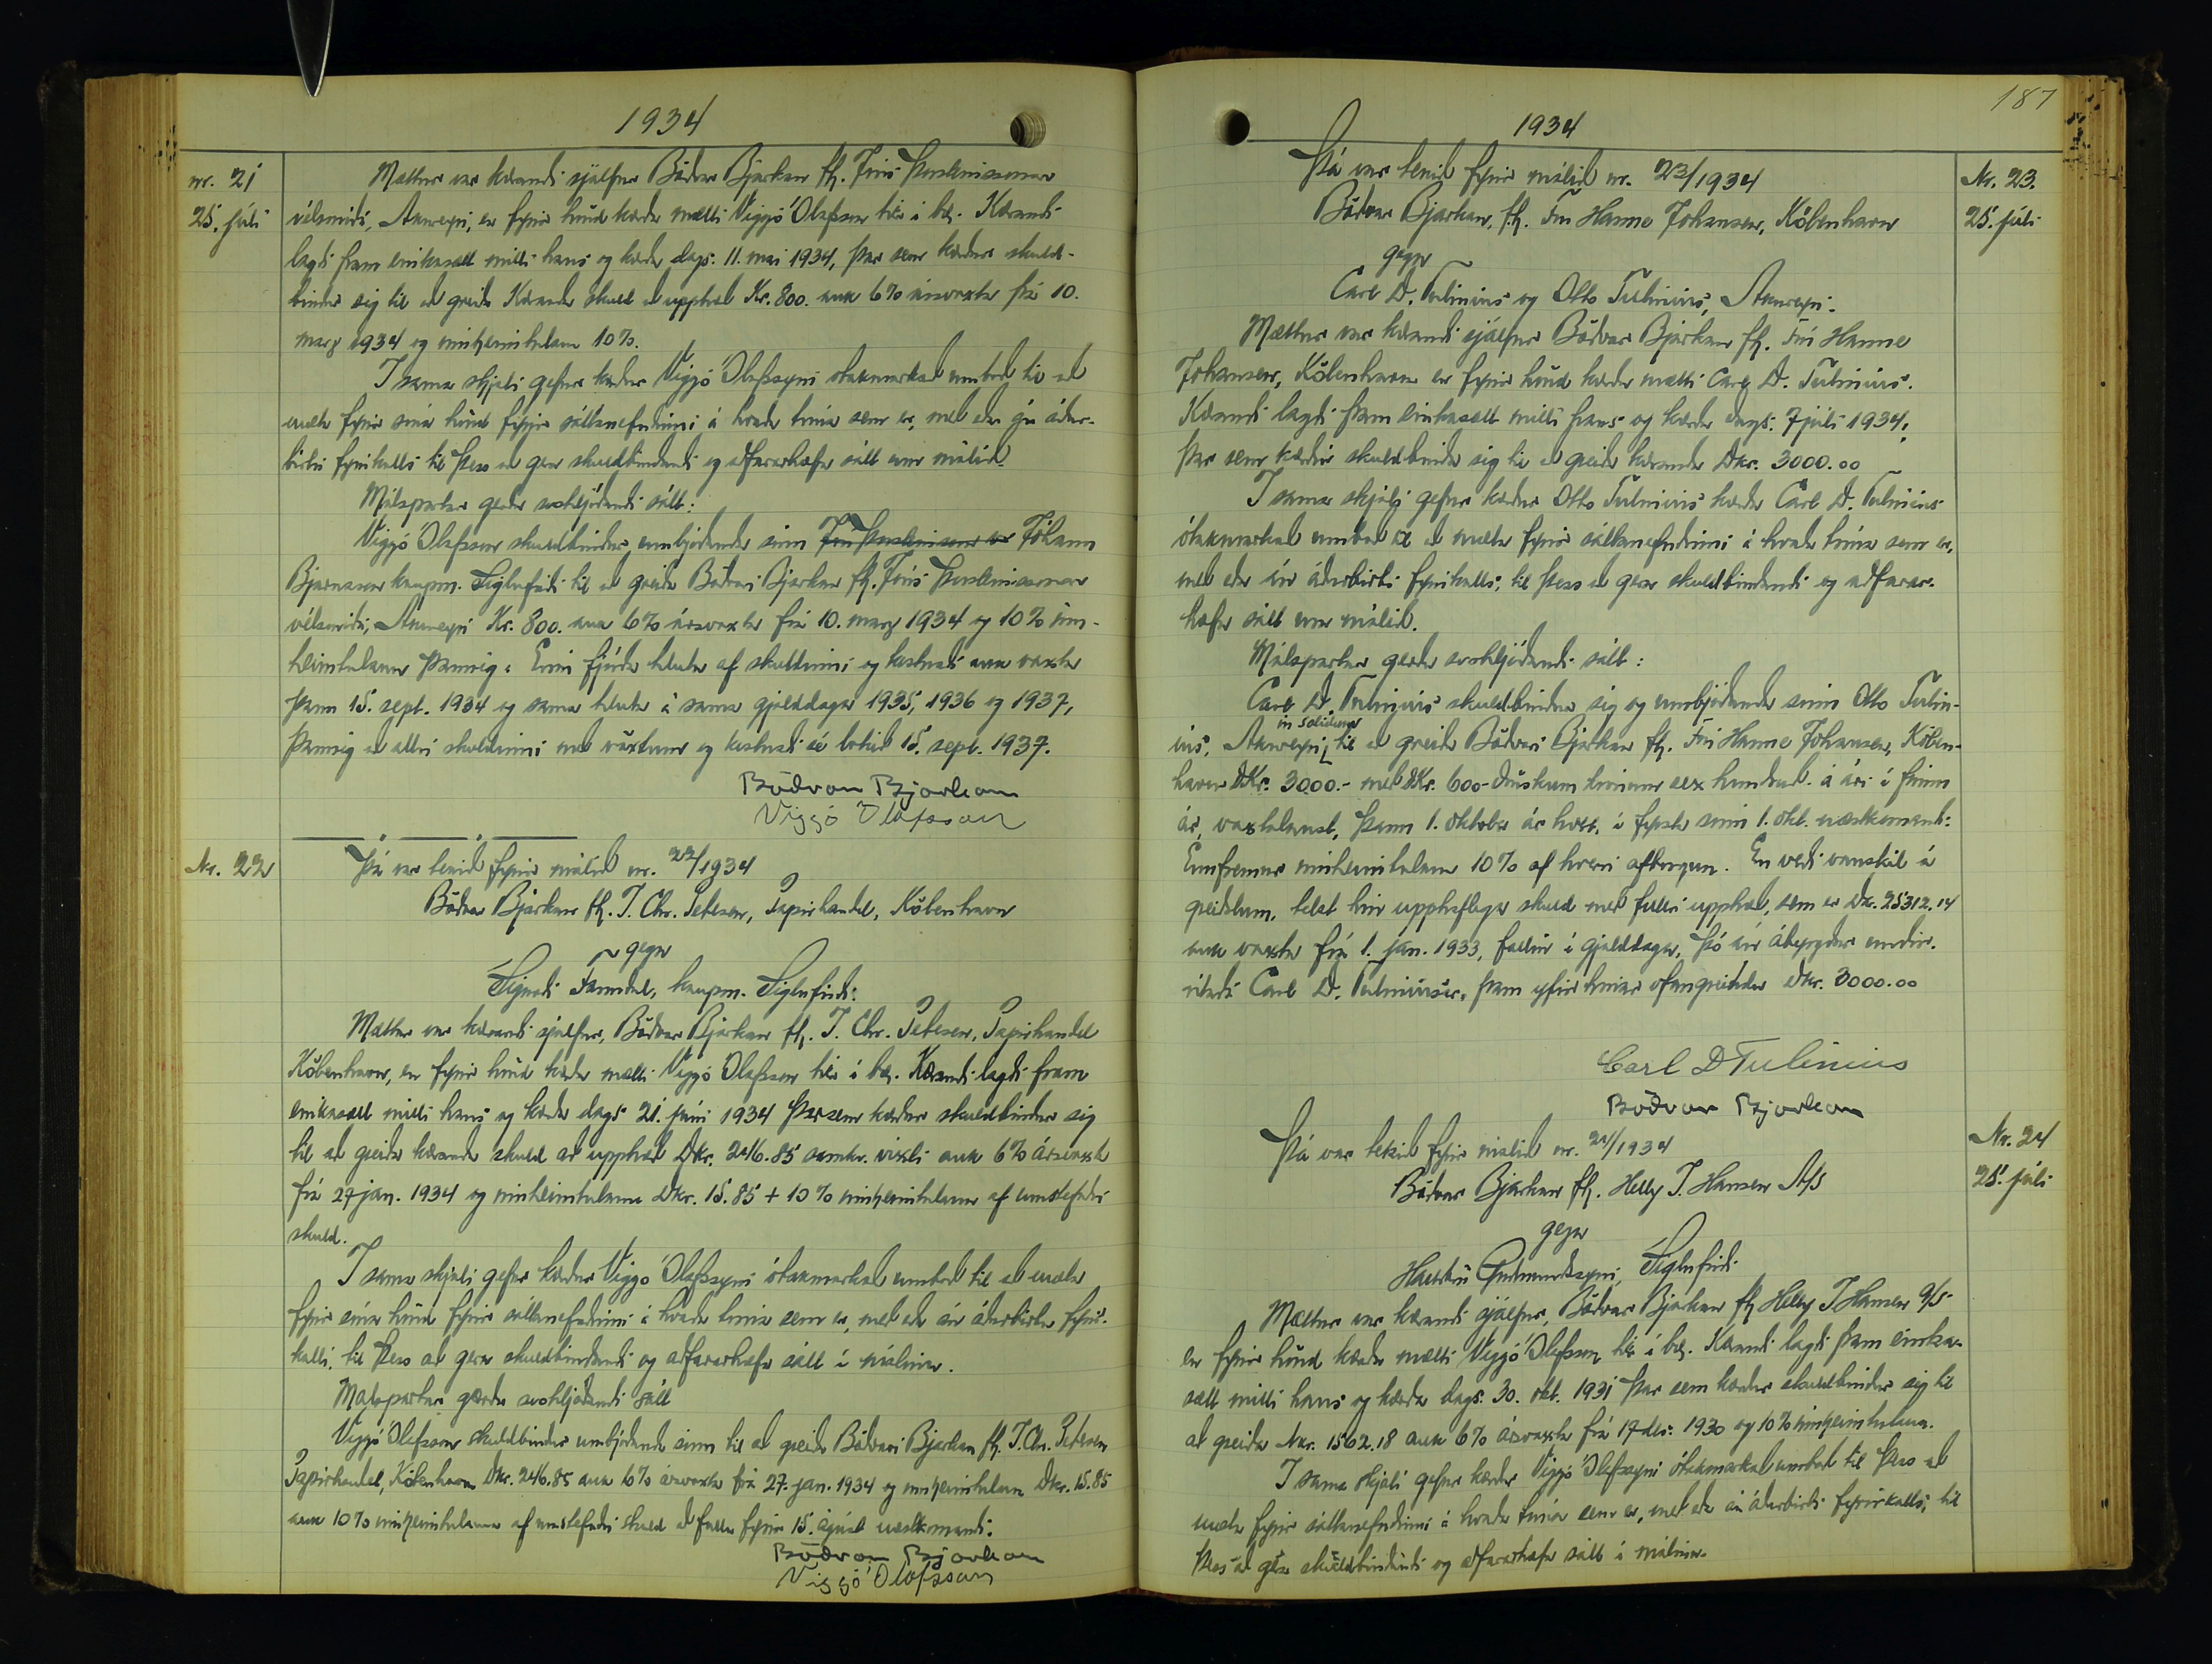 1934
nr. 21
25. júlí
Mættur var kærandi sjálfur Böðvar Bjarkan fh. Jóns Þorsteinssonar
vélsmiðs, Akureyri, en fyrir hönd kærða mætti Viggó Ólafsson hér í bæ. Kærandi
lagði fram einkasátt milli hans og kærða dags. 11. maí 1934, þar sem kærður skuld-
bindur sig til að greiða kæranda skuld að upphæð Kr. 800. auk 6% ársvaxta frá 10.
marz 1934 og innheimtulaun 10%.
Í sama skjali gefur kærður Viggó Ólafssyni ótakmarkað umboð til að
mæta fyrir sína hönd fyrir sáttanefndinni á hvaða tíma sem er, með eða án áður-
birtu fyrirkalli til þess að gera skuldbindandi og aðfararhæfa sátt um málið.
Málspartar gerðu svohljóðandi sátt:
Viggó Ólafsson skuldbindur umbjóðanda sinn Jón Þorsteinsson Jóhann
Bjarnason kaupm. Siglufirði til að greiða Böðvari Bjarkan fh. Jóns Þorsteinssonar
vélsmiðs, Akureyri Kr. 800. auk 6% ársvaxta frá 10. marz 1934 og 10% inn-
heimtulaun þannig: Einn fjórða hluta af skuldinni og kostnaði auk vaxta
þann 15. sept. 1934 og sama hluta á sama gjalddaga 1935, 1936 og 1937,
þannig að allri skuldinni með vöxtum og kostnaði sé lokið 15. sept. 1937.
Böðvar Bjarkan
Viggó Ólafsson
Nr. 22
Þá var tekið fyrir málið nr. 22/1934
Böðvar Bjarkan fh. J. Chr. Petersen, Papirhandel, Köbenhavn
gegn
kaupm. Siglufirði.
Mættur var kærandi sjálfur, Böðvar Bjarkan fh. J. Chr. Petersen, Papirhandel
Köbenhavn, en fyrir hönd kærða mætti Viggó Ólafsson hér í bæ. Kærandi lagði fram
einkasátt milli hans og kærða dags. 21. júní 1934 þar sem kærður skuldbindur sig
til að greiða kæranda skuld að upphæð Dkr. 246.85 samkv. víxli auk 6% ársvaxta
frá 27 jan. 1934 og innheimtulaun Dkr. 15.85 + 10% innheimtulaun af umstefndri
skuld.
Í sama skjali gefur kærður Viggó Ólafssyni ótakmarkað umboð til að mæta
fyrir sína hönd fyrir sáttanefndinni á hvaða tíma sem er, með eða án áðurbirtu fyrir-
kalli, til þess að gera skuldbindandi og aðfararhæfa sátt í málinu.
Málspartar gerðu svohljóðandi sátt
Viggó Ólafsson skuldbindur umbjóðanda sinn til að greiða Böðvari Bjarkan fh. J. Chr. Petersen
Papirhandel, Köbenhavn Dkr. 246.85 auk 6% ársvaxta frá 27. jan. 1934 og innheimtulaun Dkr. 15.85
auk 10% innheimtulauna af umstefndri skuld að fullu fyrir 15. ágúst næstkomandi.
Böðvar Bjarkan
Viggó Ólafsson
187
1934
Nr. 23.
25. júlí
Þá var tekið fyrir málið nr. 23/1934
Böðvar Bjarkan, f.h. Frú Hanne Johansen, Köbenhavn
gegn
Carl D. Tulinius og Otto Tulinius, Akureyri.
Mættur var kærandi sjálfur Böðvar Bjarkan fh. Frú Hanne
Johansen, Köbenhavn en fyrir hönd kærða mætti Carl D. Tulinius.
Kærandi lagði fram einkasátt milli hans og kærða dags. 7 júlí 1934,
þar sem kærðir skuldbinda sig til að greiða kæranda Dkr. 3000.00
Í sama skjali gefur kærður Otto Tulinius kærða Carl D. Tulinius
ótakmarkað umboð til að mæta fyrir sáttanefndinni á hvaða tíma sem er,
með eða án áðurbirtu fyrirkalli, til þess að gera skuldbindandi og aðfarar-
hæfa sátt um málið.
Málspartar gerðu svohljóðandi sátt:
Carl D. Tulinius skuldbindur sig og umbjóðanda sinn Otto Tulin-
ius, Akureyri in solidum til að greiða Böðvari Bjarkan fh. Frú Hanne Johansen, Köben-
havn DKr. 3000.- með DKr. 600- dönskum krónum sex hundruð á ári í fimm
ár, vaxtalaust, þann 1. október ár hvert, í fyrsta sinn 1. okt. næstkomandi.
Ennfremur innheimtulaun 10% af hverri afborgun. En verði vanskil á
greiðslum, telst hin upphaflega skuld með fullri upphæð, sem er Dkr. 25312.14
auk vaxta frá 1. jan. 1933, fallin í gjalddaga, þó án ábyrgðar undir-
ritaðs Carl D. Tuliniusar, fram yfir hinar ofangreindar Dkr. 3000.00
Carl D Tulinius
Böðvar Bjarkan
Nr. 24
25. júlí
Þá var tekið fyrir málið nr. 24/1934
Böðvar Bjarkan fh. Helly J. Hansen A/S
gegn
Guðmundssyni, Siglufirði
Mættur var kærandi sjálfur, Böðvar Bjarkan fh Helly J Hansen A/S
en fyrir hönd kærða mætti Viggó Ólafsson hér í bæ. Kærandi lagði fram einka-
sátt milli hans og kærða dags. 30. okt. 1931 þar sem kærður skuldbindur sig til
að greiða Nkr. 1562.18 auk 6% ársvaxta frá 17 des. 1930 og 10% innheimtulaun.
Í sama skjali gefur kærður Viggó Ólafssyni ótakmarkað umboð til þess að
mæta fyrir sáttanefndinni á hvaða tíma sem er, með eða án áðurbirtu fyrirkalli, til
þess að gera skuldbindandi og aðfararhæfa sátt í málinu.